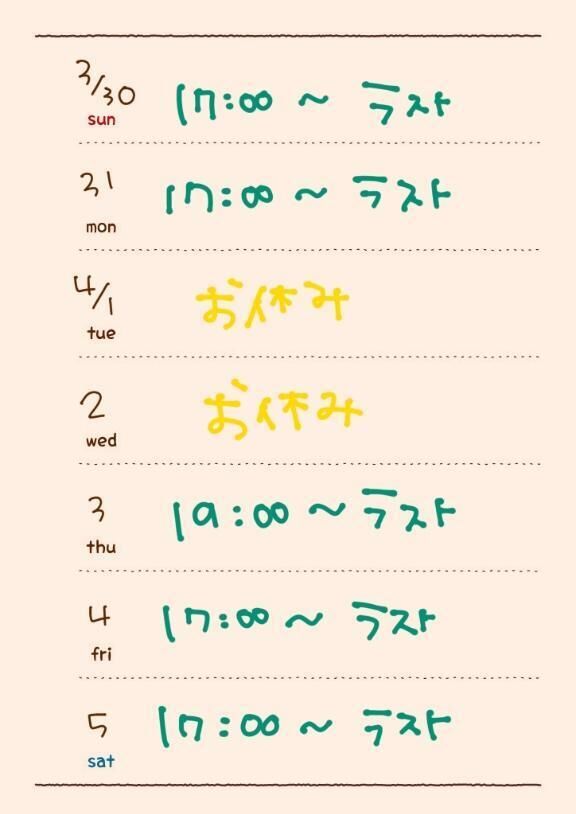 3/30
sun
17:00 ~ ラスト
31
mon
17:00 ~ ラスト
4/1
tue
お休み
2
wed
お休み
3
thu
19:00 ~ ラスト
4
fri
17:00 ~ ラスト
5
sat
17:00 ~ ラスト